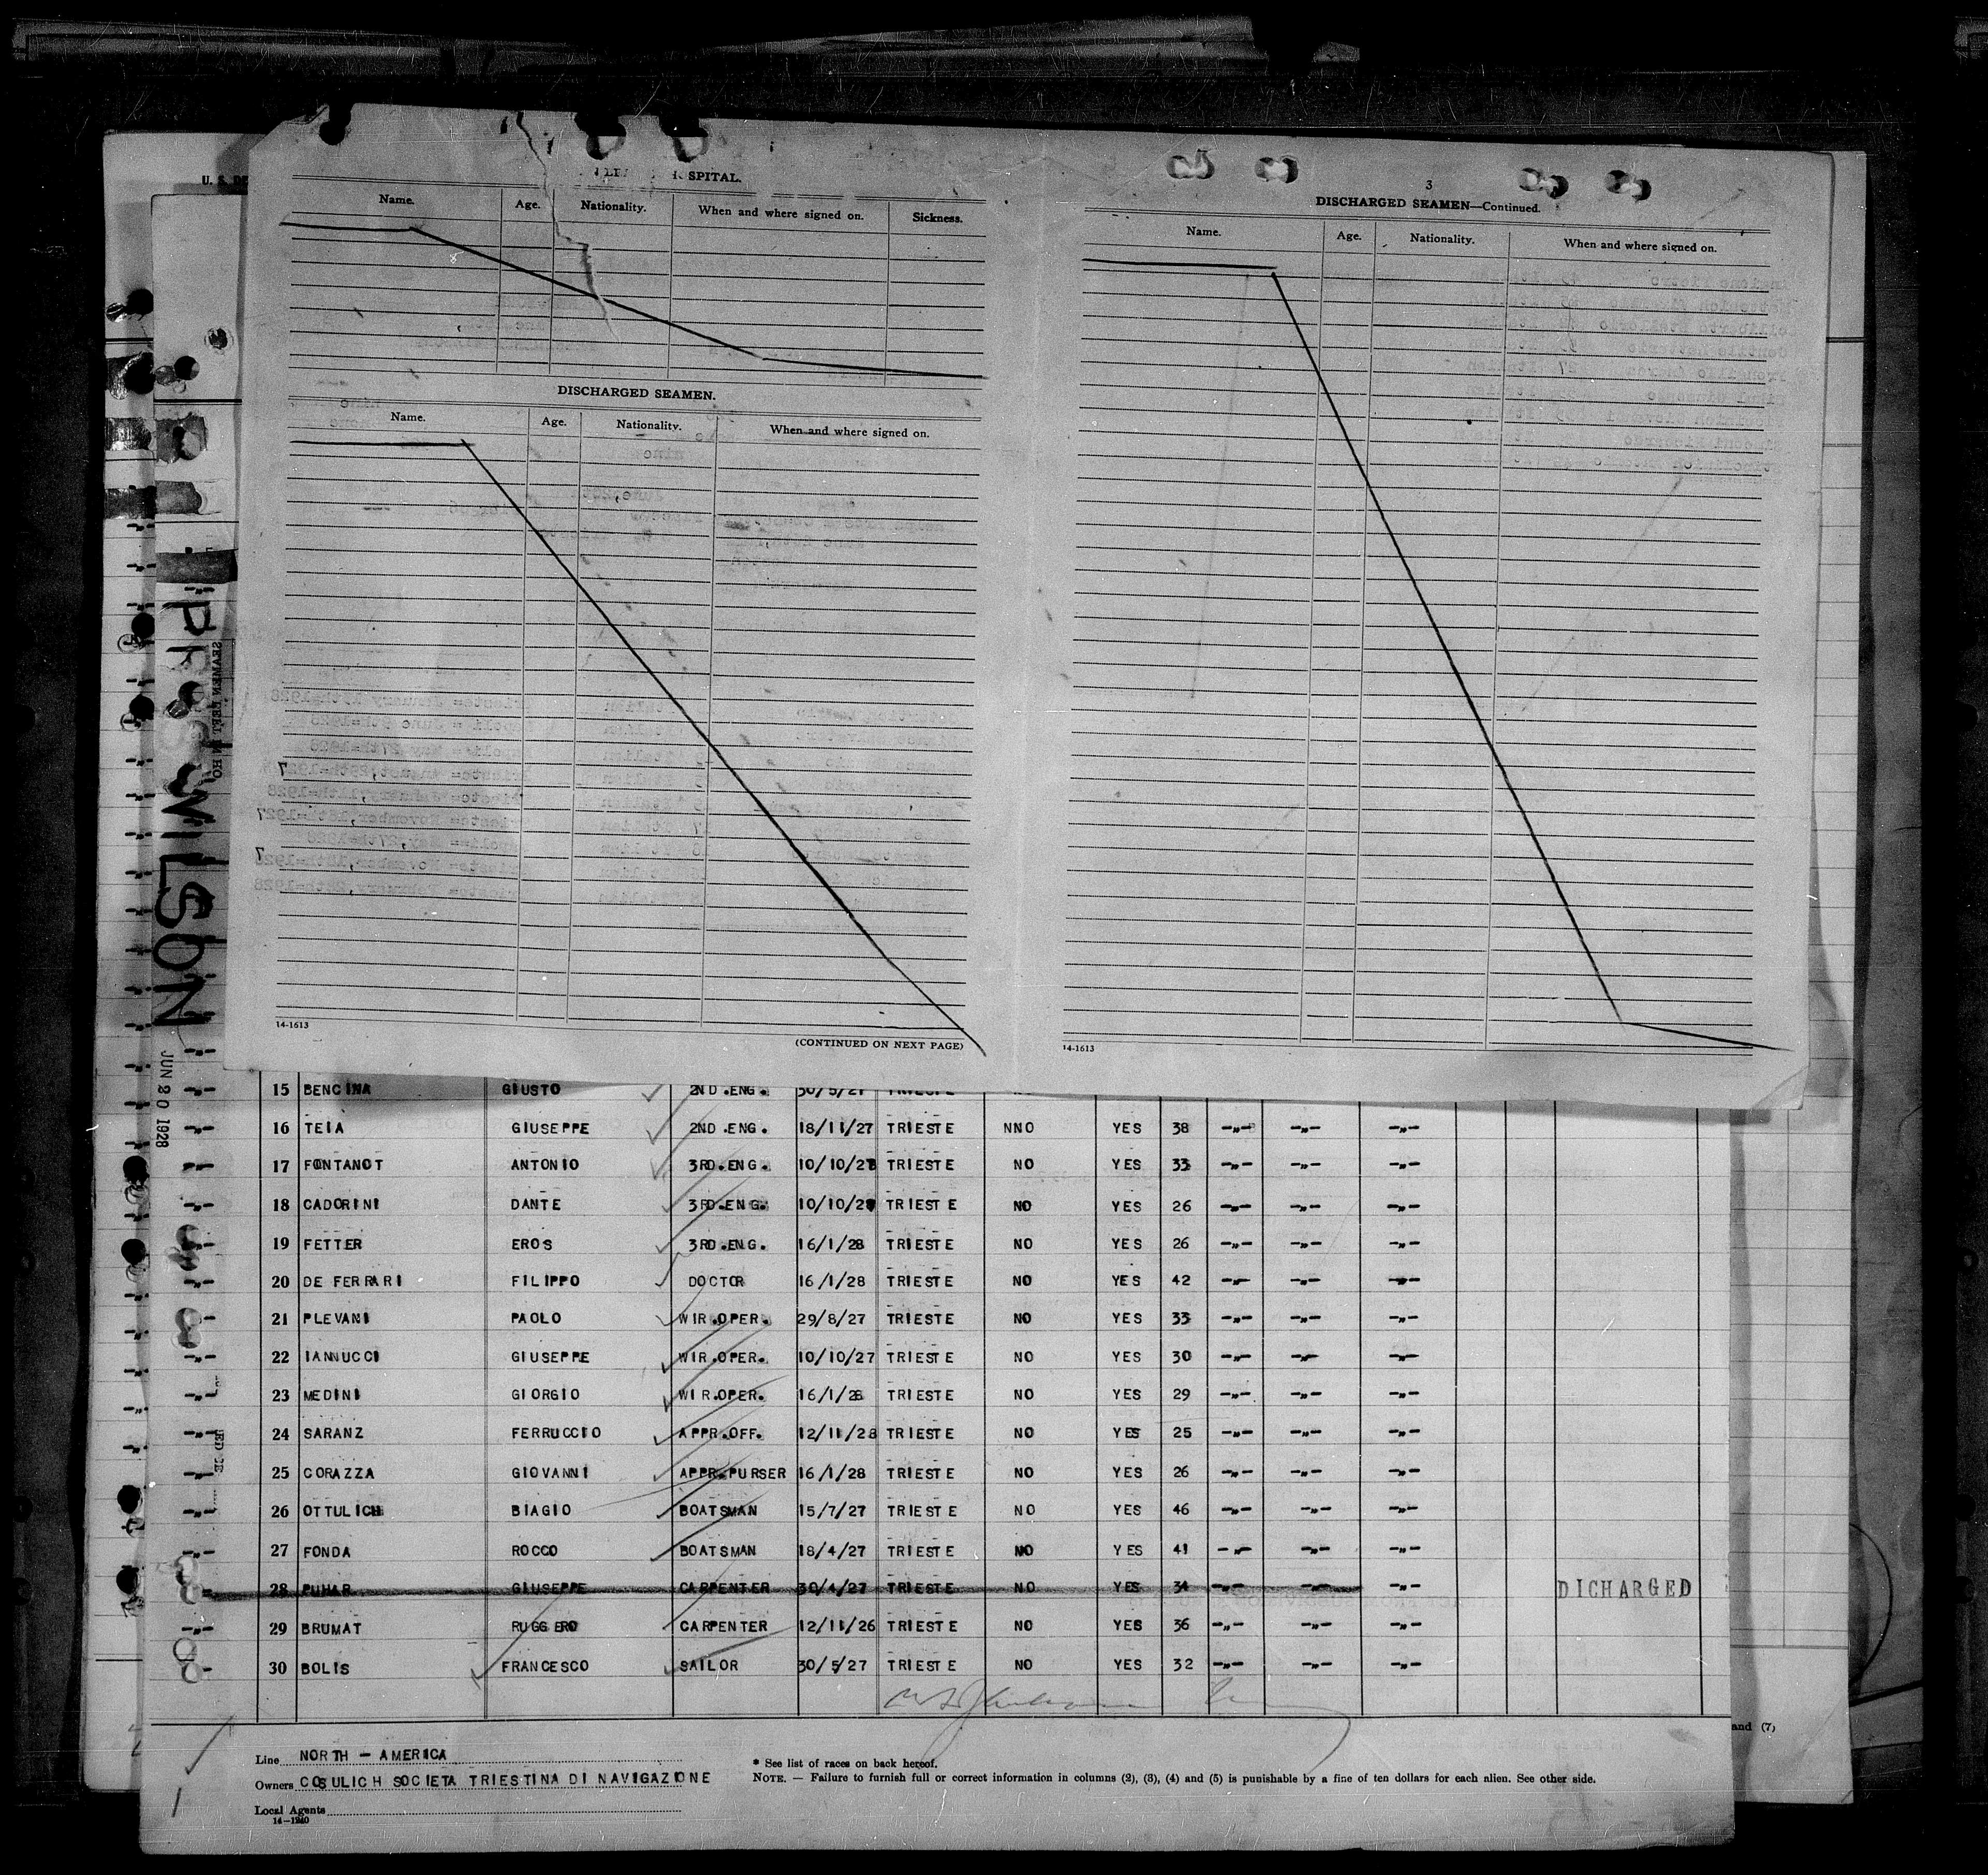 U. S. DE
SPITAL.
Name. Age. Nationality. When and where signed on. Sickness.
DISCHARGED SEAMEN.
Name. Age. Nationality. When and where signed on.
14-1613
(CONTINUED ON NEXT PAGE)
3
DISCHARGED SEAMEN—Continued.
Name. Age. Nationality. When and where signed on.
14-1613
PRES WILSON
JUN 20 1928
SEAMEN LEFT IN HO
15 BENCINA GIUSTO 2ND.ENG. 30/5/27 TRIESTE
16 TEIA GIUSEPPE 2ND.ENG. 18/11/27 TRIESTE NNO YES 38 -"- -"- -"-
17 FONTANOT ANTONIO 3RD.ENG. 10/10/27 TRIESTE NO YES 33 -"- -"- -"-
18 CADORINI DANTE 3RD.ENG. 10/10/27 TRIESTE NO YES 26 -"- -"- -"-
19 FETTER EROS 3RD.ENG. 16/1/28 TRIESTE NO YES 26 -"- -"- -"-
20 DE FERRARI FILIPPO DOCTOR 16/1/28 TRIESTE NO YES 42 -"- -"- -"-
21 PLEVANI PAOLO WIR.OPER. 29/8/27 TRIESTE NO YES 33 -"- -"- -"-
22 IANNUCCI GIUSEPPE WIR.OPER. 10/10/27 TRIESTE NO YES 30 -"- -"- -"-
23 MEDINI GIORGIO WIR.OPER. 16/1/28 TRIESTE NO YES 29 -"- -"- -"-
24 SARANZ FERRUCCIO APPR.OFF. 12/11/28 TRIESTE NO YES 25 -"- -"- -"-
25 CORAZZA GIOVANNI APPR.PURSER 16/1/28 TRIESTE NO YES 26 -"- -"- -"-
26 OTTULICH BIAGIO BOATSMAN 15/7/27 TRIESTE NO YES 46 -"- -"- -"-
27 FONDA ROCCO BOATSMAN 18/4/27 TRIESTE NO YES 41 -"- -"- -"-
28 PUHAR GIUSEPPE CARPENTER 30/4/27 TRIESTE NO YES 34 -"- -"- -"- DICHARGED
29 BRUMAT RUGGERO CARPENTER 12/11/26 TRIESTE NO YES 36 -"- -"- -"-
30 BOLIS FRANCESCO SAILOR 30/5/27 TRIESTE NO YES 32 -"- -"- -"-
and (7)
Line NORTH - AMERICA
Owners COSULICH SOCIETA TRIESTINA DI NAVIGAZIONE
Local Agents
14-1240
* See list of races on back hereof.
NOTE. — Failure to furnish full or correct information in columns (2), (3), (4) and (5) is punishable by a fine of ten dollars for each alien. See other side.